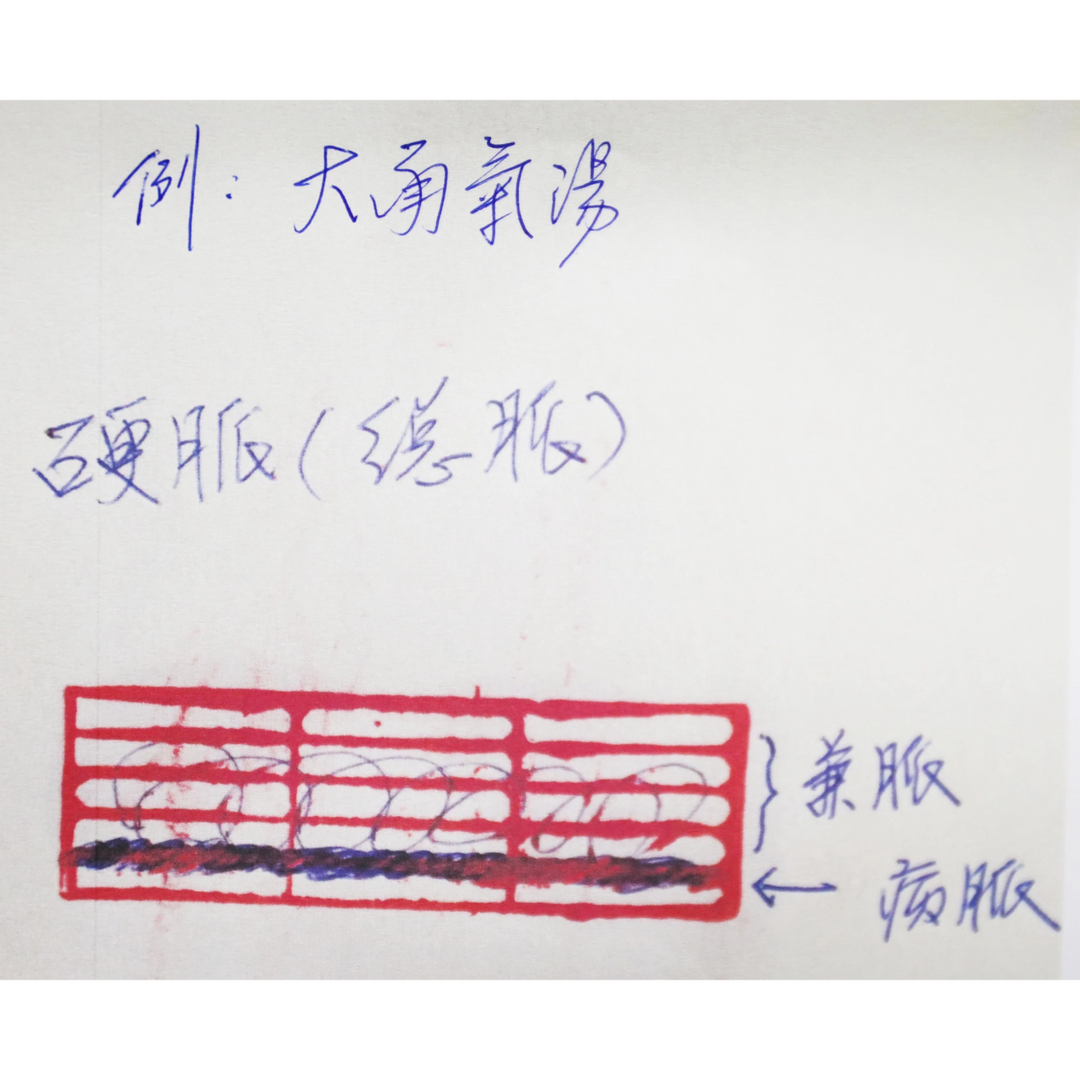 例：大承氣湯
硬脈(總脈)
兼脈
病脈